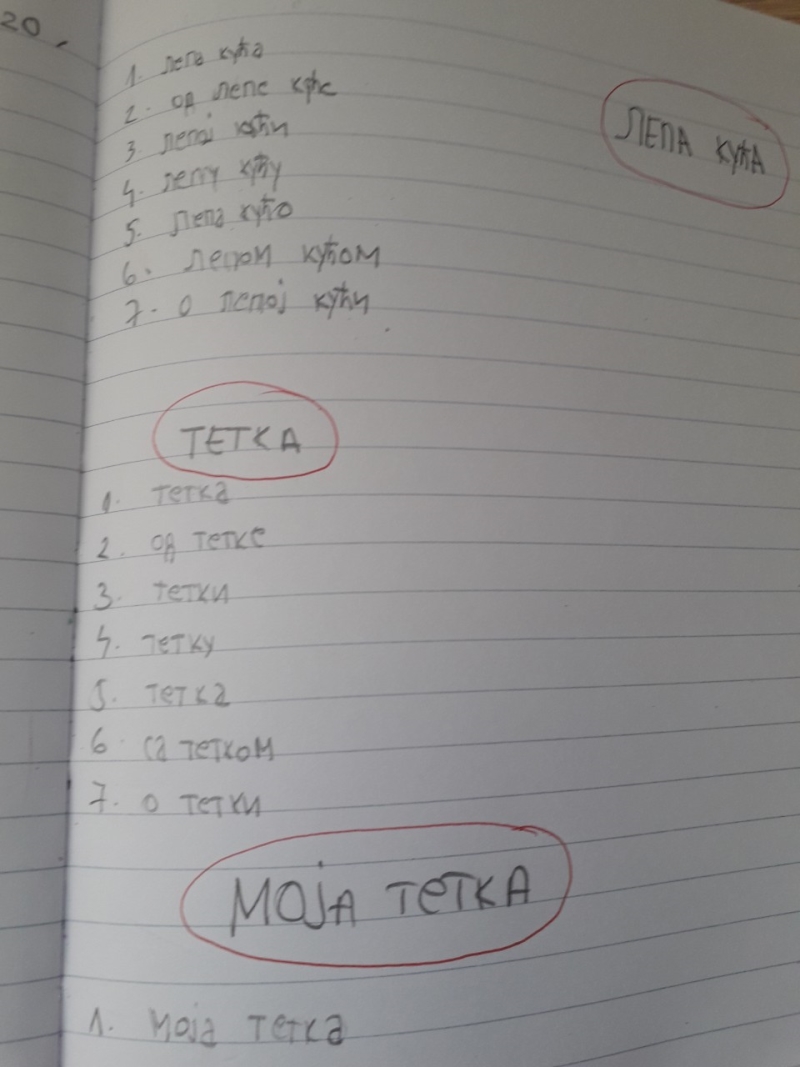 20.
ЛЕПА КУЋА
1. лепа кућа
2. од лепе куће
3. лепој кући
4. лепу кућу
5. лепа кућо
6. лепом кућом
7. о лепој кући
ТЕТКА
1. тетка
2. од тетке
3. тетки
4. тетку
5. тетка
6. са тетком
7. о тетки
МОЈА ТЕТКА
1. Моја тетка